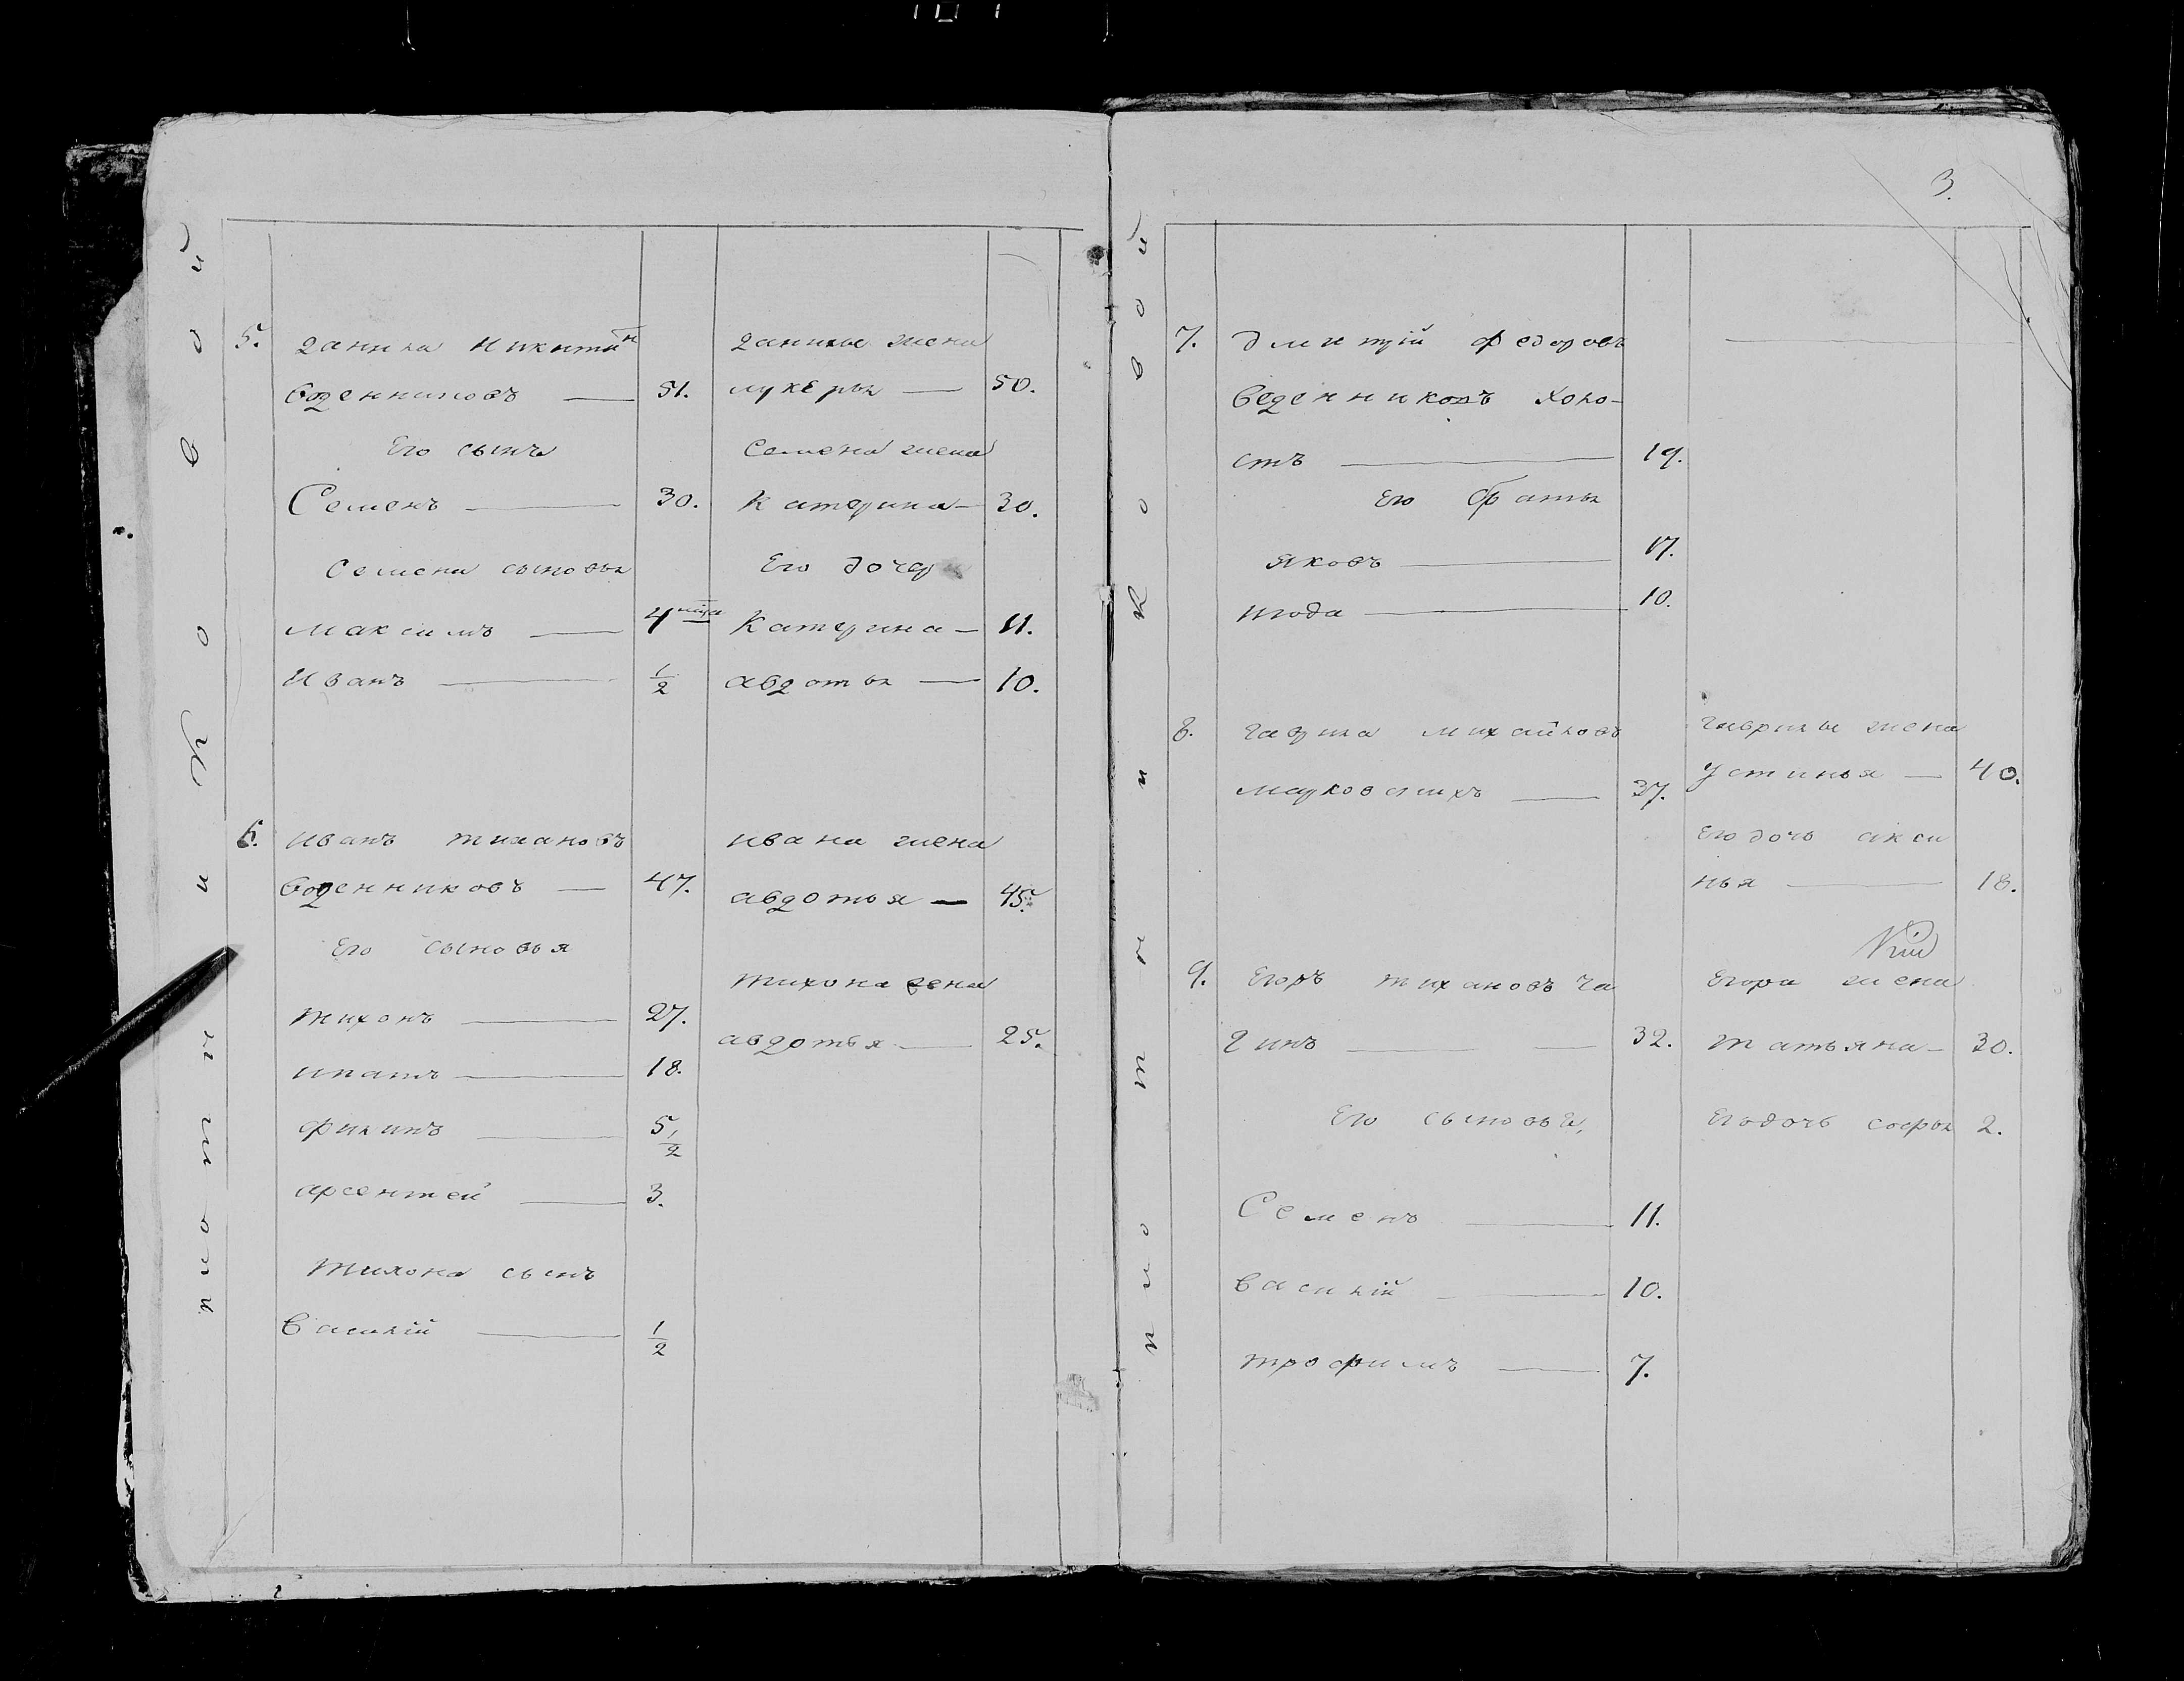 3.
5. данила никитинъ
воденниковъ — 51.
Его сынъ
Семенъ — 30.
Семена сыновья
максимъ — 4 мѣся
иванъ — 1/2
данилы жена
лукерья — 50.
Семена жена
Катерина — 30.
Его дочери
Катерина — 11.
авдотья — 10.
6. иванъ тихановъ
воденниковъ — 47.
Его сыновья
тихонъ — 27.
ипатъ — 18.
филипъ — 5 1/2
арсентей — 3.
тихона сынъ
василій — 1/2
ивана жена
авдотья — 45.
тихона жена
авдотья — 25.
7. дмитрій федоровъ
веденниковъ холо-
стъ — 19.
Его братья
яковъ — 17.
июда — 10.
8. гаврила михайловъ
марковскихъ — 37.
гаврилы жена
устинья — 40.
Его дочь акси
нья — 18.
9. Егоръ тихановъ ча
гинъ — 32.
Его сыновья,
Семенъ — 11.
василій — 10.
трофимъ — 7.
Егора жена
татьяна — 30.
Его дочь софья 2.